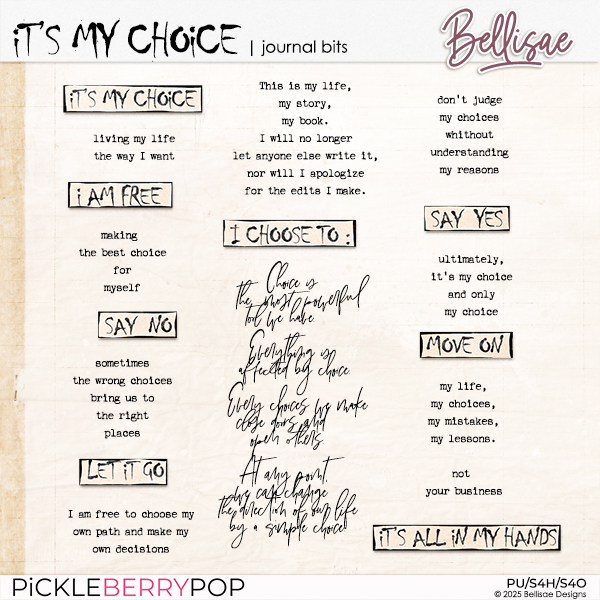 iT'S MY CHOiCE | journal bits
Bellisae
iT'S MY CHOiCE
living my life
the way I want
i AM FREE
making
the best choice
for
myself
SAY NO
sometimes
the wrong choices
bring us to
the right
places
LET iT GO
I am free to choose my
own path and make my
own decisions
This is my life,
my story,
my book.
I will no longer
let anyone else write it,
nor will I apologize
for the edits I make.
I CHOOSE TO :
Choice is
the most powerful
tool we have.
Everything is
affected by choice.
Every choices we make
close doors and
open others.
At any point,
we can change
the direction of our life
by a simple choice
don't judge
my choices
whithout
understanding
my reasons
SAY YES
ultimately,
it's my choice
and only
my choice
MOVE ON
my life,
my choices,
my mistakes,
my lessons.
not
your business
iT'S ALL iN MY HANDS
PiCKLEBERRYPOP
PU/S4H/S4O
© 2025 Bellisae Designs